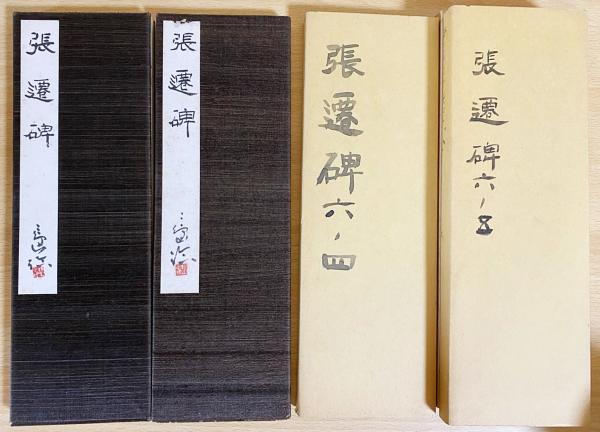 張遷碑
張遷碑
張遷碑六ノ四
張遷碑六ノ五